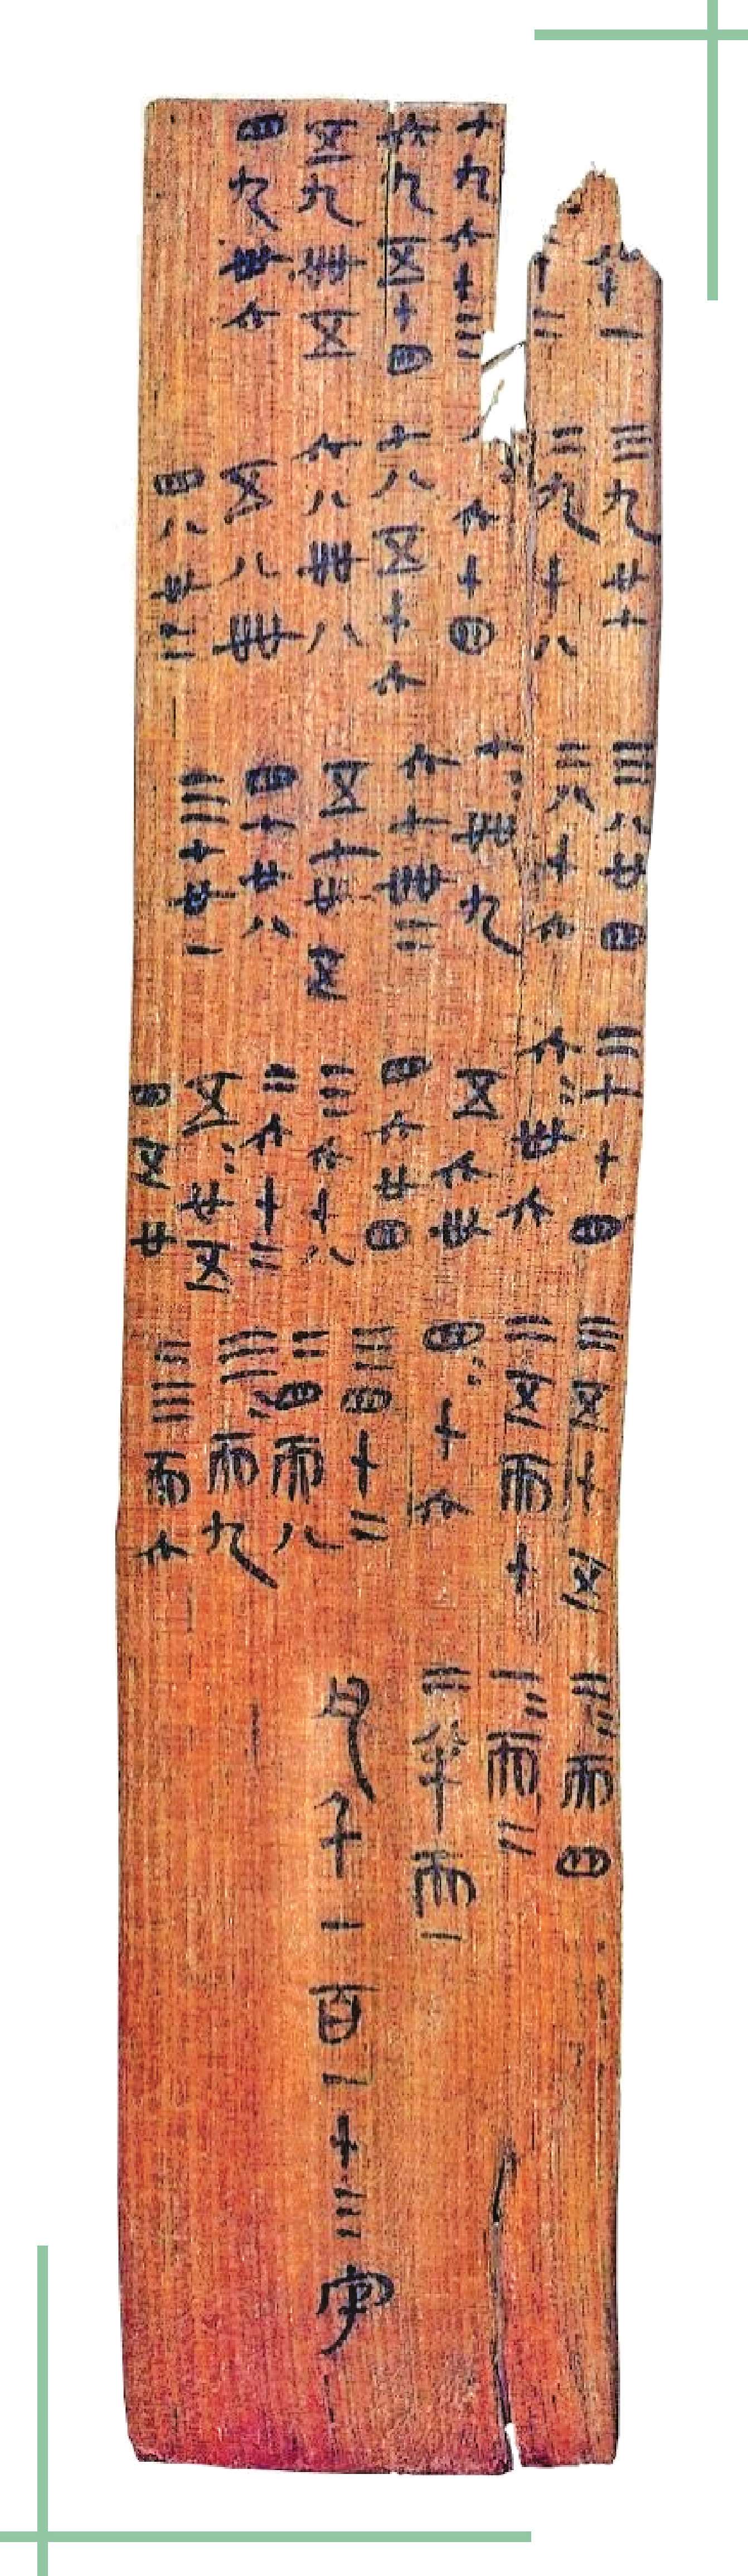 八十一
十二
七九六十三
六九五十四
五九卌五
四九卅六
三九廿七
二九十八
六十四
七八五十六
六八卌八
五八卌
四八卅二
三八廿四
二八十六
七=卌九
六七卌二
五七卅五
四七廿八
三七廿一
二七十四
六=卅六
五六卅
四六廿四
三六十八
二六十二
五=廿五
四五廿
三五十五
二五而十
四=十六
三四十二
二四而八
三=而九
二三而六
二=而四
一=而二
二半而一
凡千一百一十三字